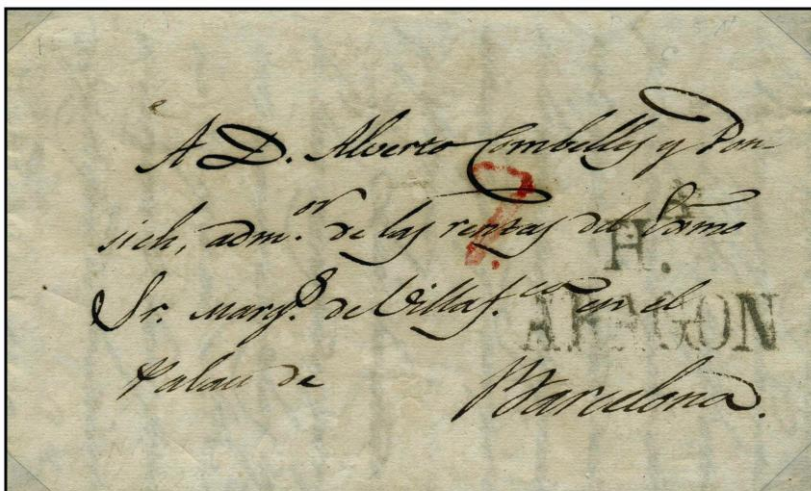 A D. Alberto Combelles y Pon-
sich, adm.or de las rentas del Exmo
Sr. marq.s de Villaf.ca en el
Palau de Barcelona.
7.
H.A
ARAGON